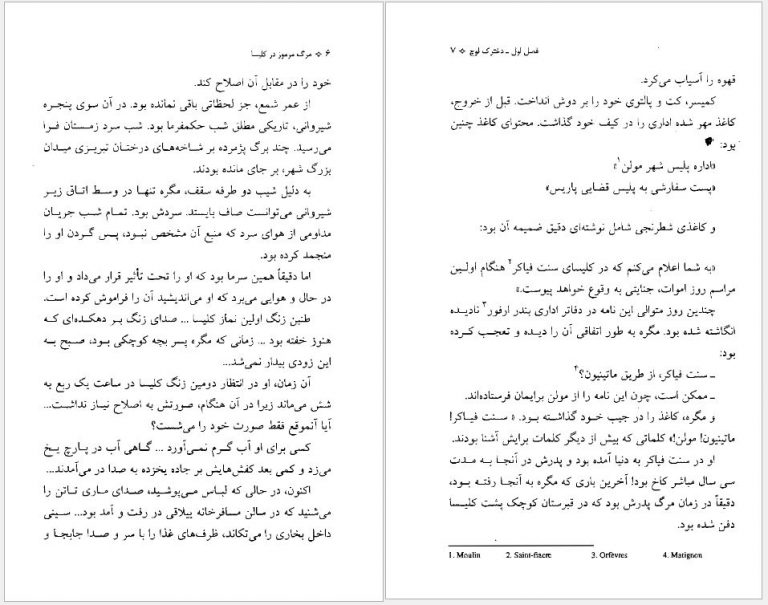 ۶ ❖ مرگ مرموز در کلیسا
خود را در مقابل آن اصلاح کند.
از عمر شمع، جز لحظاتی باقی نمانده بود. در آن سوی پنجره
شیروانی، تاریکی مطلق شب حکمفرما بود. شب سرد زمستان فرا
می‌رسید. چند برگ پژمرده بر شاخه‌های درختان تبریزی میدان
بزرگ شهر، بر جای مانده بودند.
به دلیل شیب دو طرفه سقف، مگره تنها در وسط اتاق زیر
شیروانی می‌توانست صاف بایستد. سردش بود. تمام شب جریان
مداومی از هوای سرد که منبع آن مشخص نبود، پس گردن او را
منجمد کرده بود.
اما دقیقاً همین سرما بود که او را تحت تأثیر قرار می‌داد و او را
در حال و هوایی می‌برد که او می‌اندیشید آن را فراموش کرده است.
طنین زنگ اولین نماز کلیسا ... صدای زنگ بر دهکده‌ای که
هنوز خفته بود ... زمانی که مگره پسر بچه کوچکی بود، صبح به
این زودی بیدار نمی‌شد...
آن زمان، او در انتظار دومین زنگ کلیسا در ساعت یک ربع به
شش می‌ماند زیرا در آن هنگام، صورتش به اصلاح نیاز نداشت...
آیا آنموقع فقط صورت خود را می‌شست؟
کسی برای او آب گرم نمی‌آورد ... گاهی آب در پارچ یخ
می‌زد و کمی بعد کفش‌هایش بر جاده یخزده به صدا در می‌آمدند...
اکنون، در حالی که لباس می‌پوشید، صدای ماری تاتن را
می‌شنید که در سالن مسافرخانه ییلاقی در رفت و آمد بود... سینی
داخل بخاری را می‌تکاند، ظرف‌های غذا را با سر و صدا جابجا و
فصل اول ـ دخترک لوچ ❖ ۷
قهوه را آسیاب می‌کرد.
کمیسر، کت و پالتوی خود را بر دوش انداخت. قبل از خروج،
کاغذ مهر شده اداری را در کیف خود گذاشت. محتوای کاغذ چنین
بود:
«اداره پلیس شهر مولن¹»
«پست سفارشی به پلیس قضایی پاریس»
و کاغذی شطرنجی شامل نوشته‌ای دقیق ضمیمه آن بود:
«به شما اعلام می‌کنم که در کلیسای سنت فیاکر² هنگام اولین
مراسم روز اموات، جنایتی به وقوع خواهد پیوست.»
چندین روز متوالی این نامه در دفاتر اداری بندر ارفور³ نادیده
انگاشته شده بود. مگره به طور اتفاقی آن را دیده و تعجب کرده
بود:
ـ سنت فیاکر، از طریق ماتینیون؟⁴
ـ ممکن است، چون این نامه را از مولن برایمان فرستاده‌اند.
و مگره، کاغذ را در جیب خود گذاشته بود. « سنت فیاکر!
ماتینیون! مولن!» کلماتی که بیش از دیگر کلمات برایش آشنا بودند.
او در سنت فیاکر به دنیا آمده بود و پدرش در آنجا به مدت
سی سال مباشر کاخ بود! آخرین باری که مگره به آنجا رفته بود،
دقیقاً در زمان مرگ پدرش بود که در قبرستان کوچک پشت کلیسا
دفن شده بود.
1. Moulin 2. Saint-fiacre 3. Orfèvres 4. Matignon